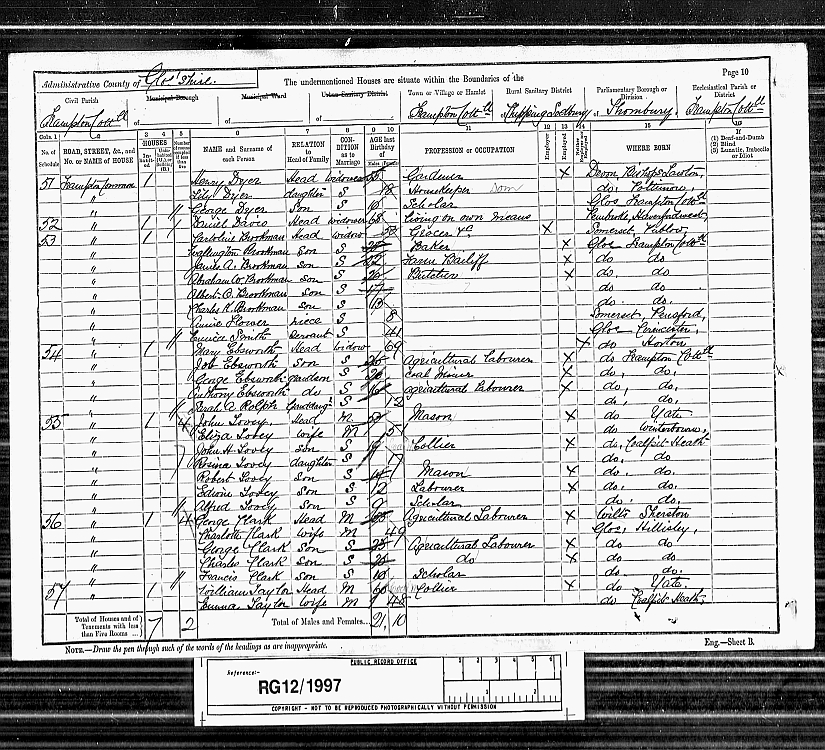 Administrative County of Glos'shire.
The undermentioned Houses are situate within the Boundaries of the
Page 10
Civil Parish
Municipal Borough
Municipal Ward
Urban Sanitary District
Town or Village or Hamlet
Rural Sanitary District
Parliamentary Borough or Division
Ecclesiastical Parish or District
Frampton Cottll
of
of
of
Frampton Cottll of Chipping Sodbury of Thornbury. Frampton Cottll
Cols. 1 2 3 4 5 6 7 8 9 10 11 12 13 14 15 16
No. of Schedule
ROAD, STREET, &c., and No. or NAME of HOUSE
HOUSES
NAME and Surname of each Person
RELATION to Head of Family
CONDITION as to Marriage
AGE last Birthday of
PROFESSION or OCCUPATION
Employer
Employed
WHERE BORN
If (1) Deaf-and-Dumb (2) Blind (3) Lunatic, Imbecile or Idiot
51 Frampton Common 1 Henry Dyer Head widower Gardener X Devon
" Lily Dyer daughter S 18 Housekeeper Dom do. Poltimore,
" George Dyer Son S 10 Scholar Glos Frampton Cottll
52 " 1 Daniel Davis Head widower 68 Living on own means Pembroke, Haverfordwest
53 " 1 Caroline Brookman Head widow 52 Grocer &c X Somerset Publow
" Wallington Brookman Son S Baker X Glos Frampton Cottll
" James A. Brookman Son S 22 Farm Bailiff X do do
" Abraham W. Brookman Son S 20 X do. do
" Albert O. Brookman Son S 17 do do.
" Charles K. Brookman Son S 13 do. do.
" Annie Flower niece S 8 Somerset, Pensford,
" Eunice Smith Servant S 41 Glos
54 " 1 Mary Ebsworth Head widow 69 X do Horton
" Job Ebsworth Son S Agricultural Labourer X do Frampton Cottll
" George Ebsworth Grandson S 20 Coal Miner X do, do,
" Anthony Ebsworth do S 16 Agricultural Labourer X do, do,
" Sarah A. Rolph Granddaugr S 12 do, do,
55 " 1 4 John Lovey, Head M Mason X do Yate
" Eliza Lovey wife M do Winterbourne,
" John H. Lovey Son S Collier X do, Coalpit Heath
" Rosina Lovey daughter S 17 do. do.
" Robert Lovey Son S Mason X do. do.
" Edwin Lovey Son S 12 Labourer X do, do,
" Alfred Lovey Son S 9 Scholar do. do.
56 " 1 4 George Clark Head M Agricultural Labourer X Wilts Sherston
" Charlotte Clark wife M 49 Glos, Hillisley,
" George Clark Son S 23 Agricultural Labourer X do do
" Charles Clark Son S do X do do
" Francis Clark Son S 10 Scholar do. do.
57 " 1 William Taylor Head M 60 Collier X do Yate
" Emma Taylor wife M 48 do Coalpit Heath,
Total of Houses and of Tenements with less than Five Rooms ...
7 2
Total of Males and Females...
21 10
NOTE.—Draw the pen through such of the words of the headings as are inappropriate.
Eng.—Sheet B.
PUBLIC RECORD OFFICE
Reference:-
RG12/1997
1 2
COPYRIGHT - NOT TO BE REPRODUCED PHOTOGRAPHICALLY WITHOUT PERMISSION